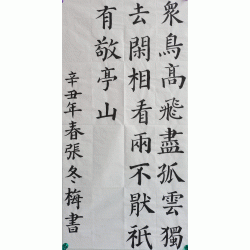 衆鳥高飛盡孤雲獨
去閑相看兩不厭衹
有敬亭山
辛丑年春張冬梅書